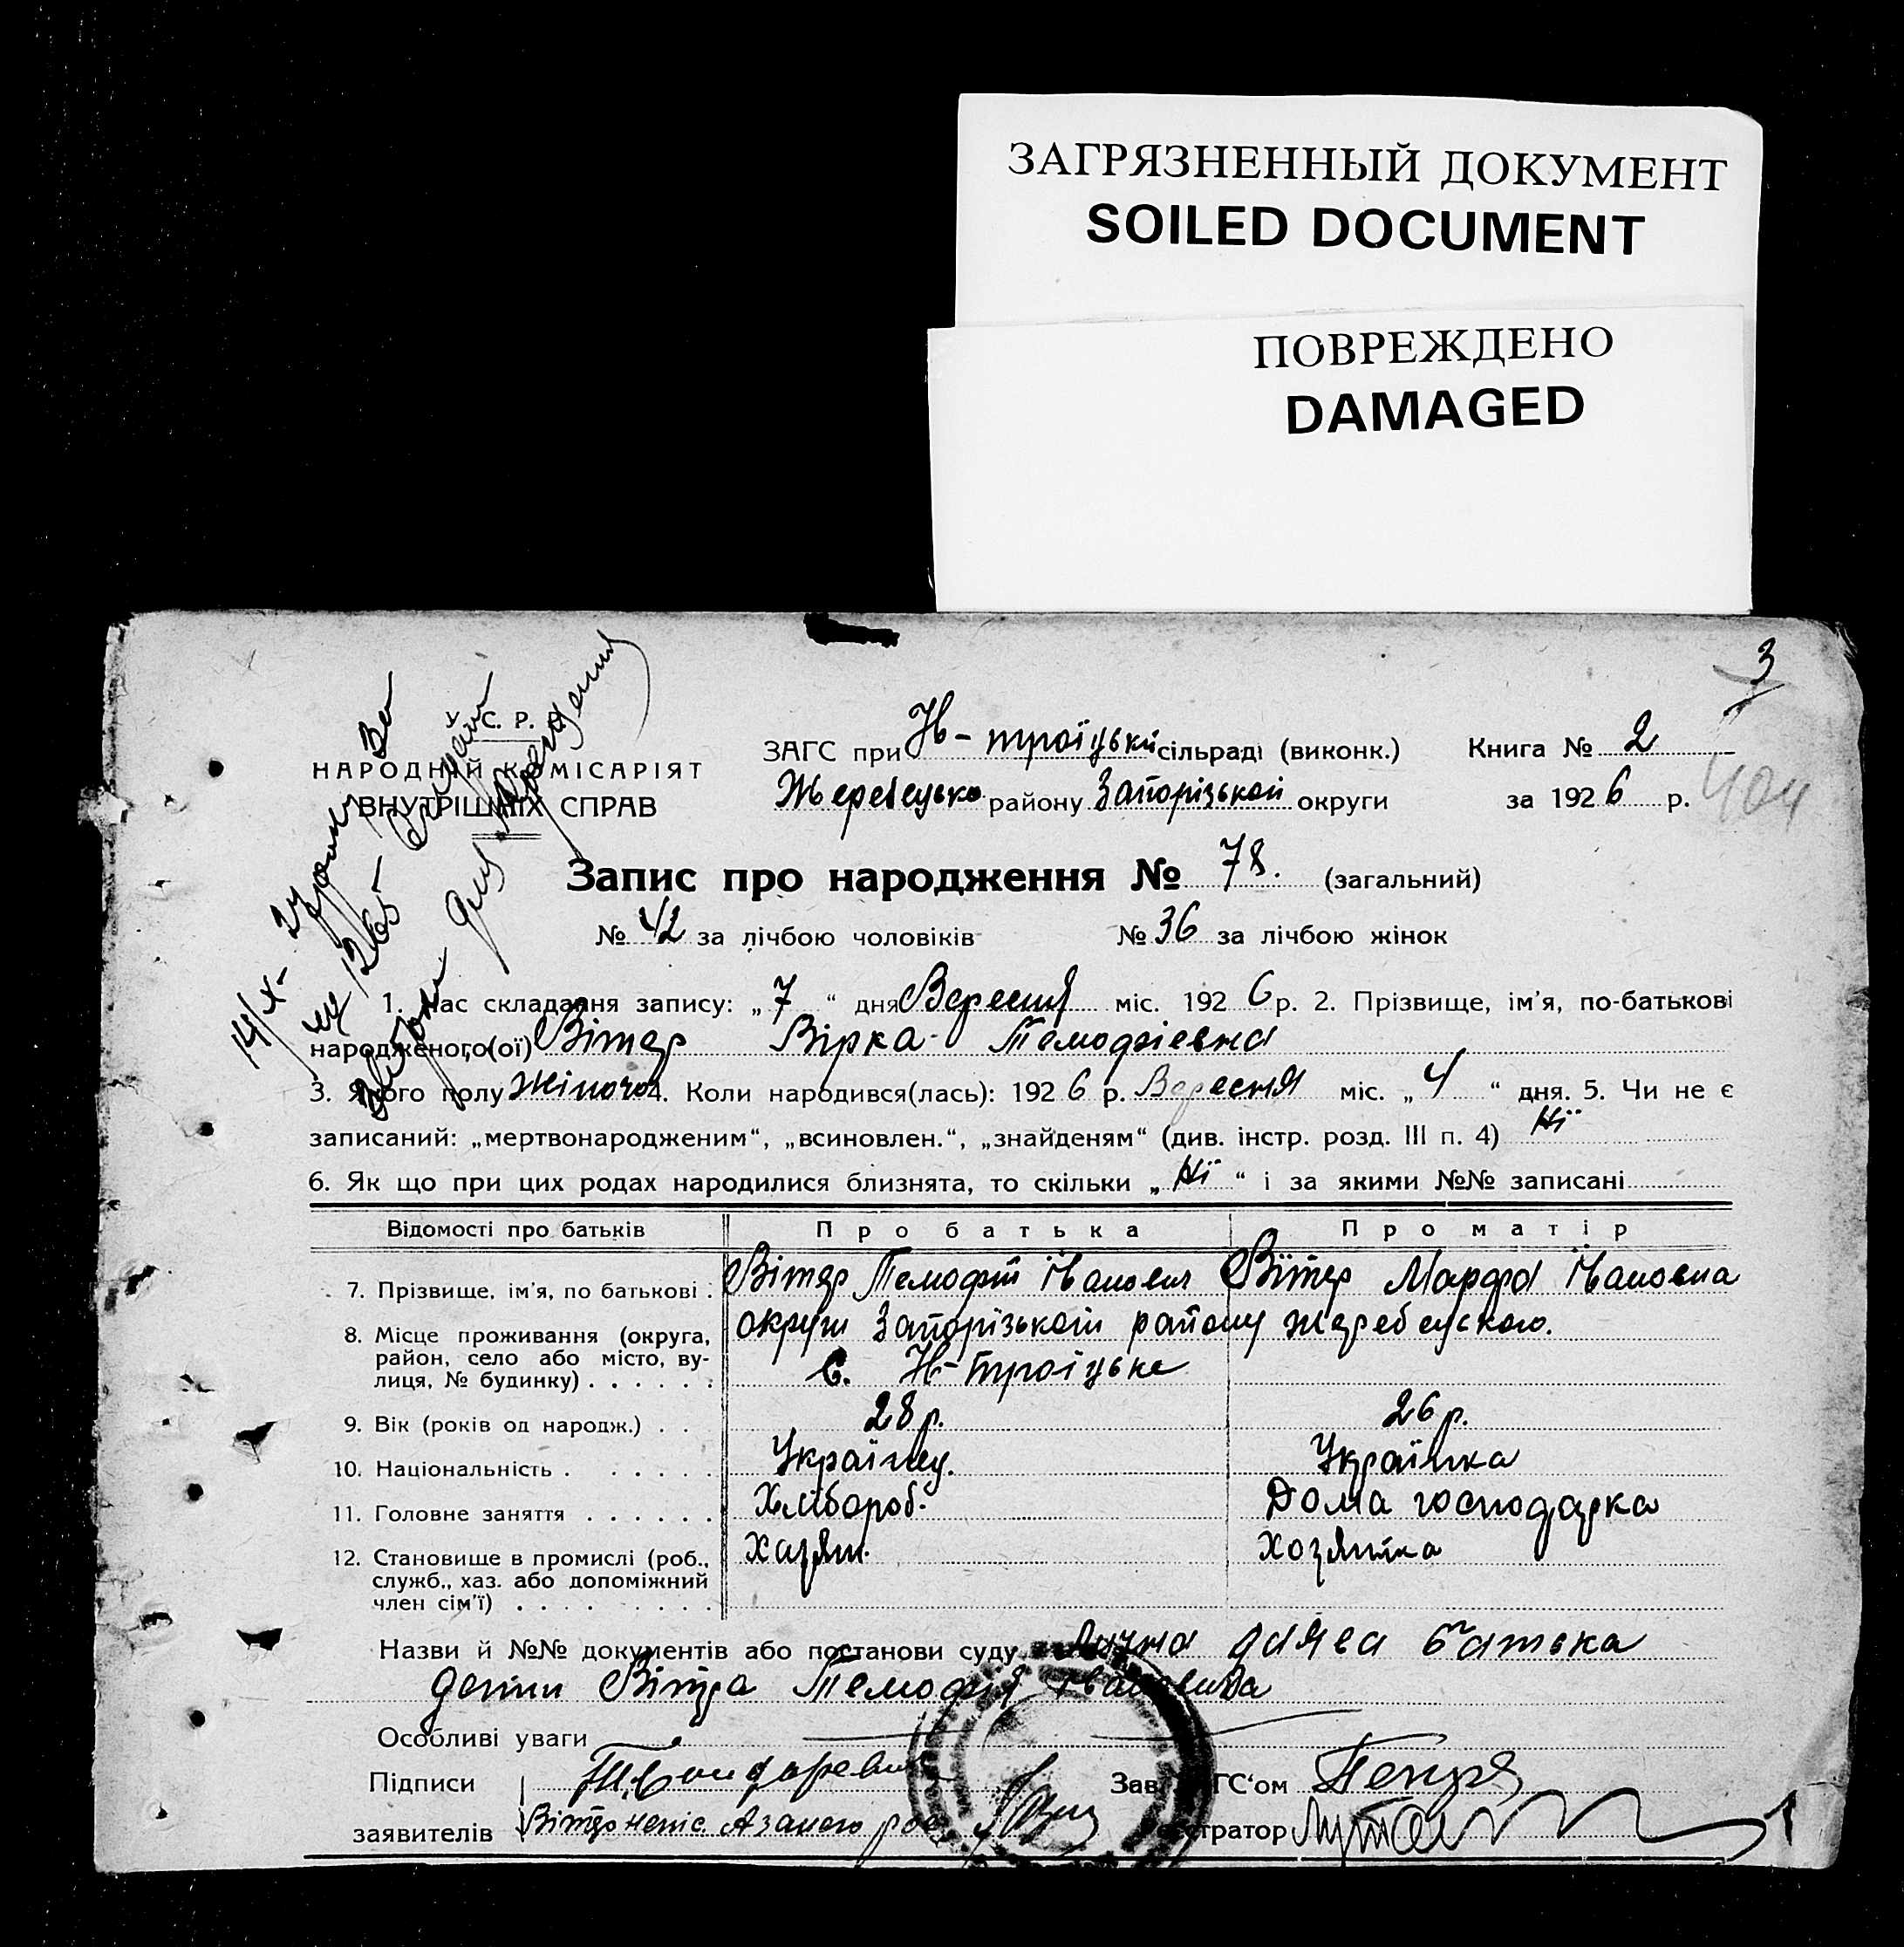 ЗАГРЯЗНЕННЫЙ ДОКУМЕНТ
SOILED DOCUMENT
ПОВРЕЖДЕНО
DAMAGED
3
404
У. С. Р. Р.
НАРОДНИЙ КОМІСАРІЯТ
ВНУТРІШНІХ СПРАВ
ЗАГС при Н-троїцькій сільраді (виконк.) Книга № 2
Жеребецько району Запорізької округи за 1926 р.
Запис про народження № 78. (загальний)
№ 42 за лічбою чоловіків № 36 за лічбою жінок
1. Час складання запису: „7“ дня Вересня міс. 1926 р. 2. Прізвище, ім'я, по-батькові
народженого(ої) Вітер Вірка Темофієвна
3. Якого полу жіночо 4. Коли народився(лась): 1926 р. Вересня міс. „4“ дня. 5. Чи не є
записаний: „мертвонародженим“, „всиновлен.“, „знайденям“ (див. інстр. розд. III п. 4) Ні
6. Як що при цих родах народилися близнята, то скільки „Ні“ і за якими №№ записані
Відомості про батьків Про батька Про матір
7. Прізвище, ім'я, по батькові . Вітер Темофій Іванович Вітер Марфа Івановна
8. Місце проживання (округа, район, село або місто, вулиця, № будинку) . . . . . . округи Запорізькой району жеребецского.
с. Н-Троїцьке
9. Вік (років од народж.) . . 28 р. 26 р.
10. Національність . . . . . . Українец. Українка
11. Головне заняття . . . . . . Хлібороб. Дома господарка
12. Становище в промислі (роб., служб., хаз. або допоміжний член сім'ї) . . . . . . . . Хазяін. Хозяйка
Назви й №№ документів або постанови суду личная заява батька
детини Вітра Темофія Івановича
Особливі уваги
Підписи Зав. ЗАГС'ом
заявителів Вітер